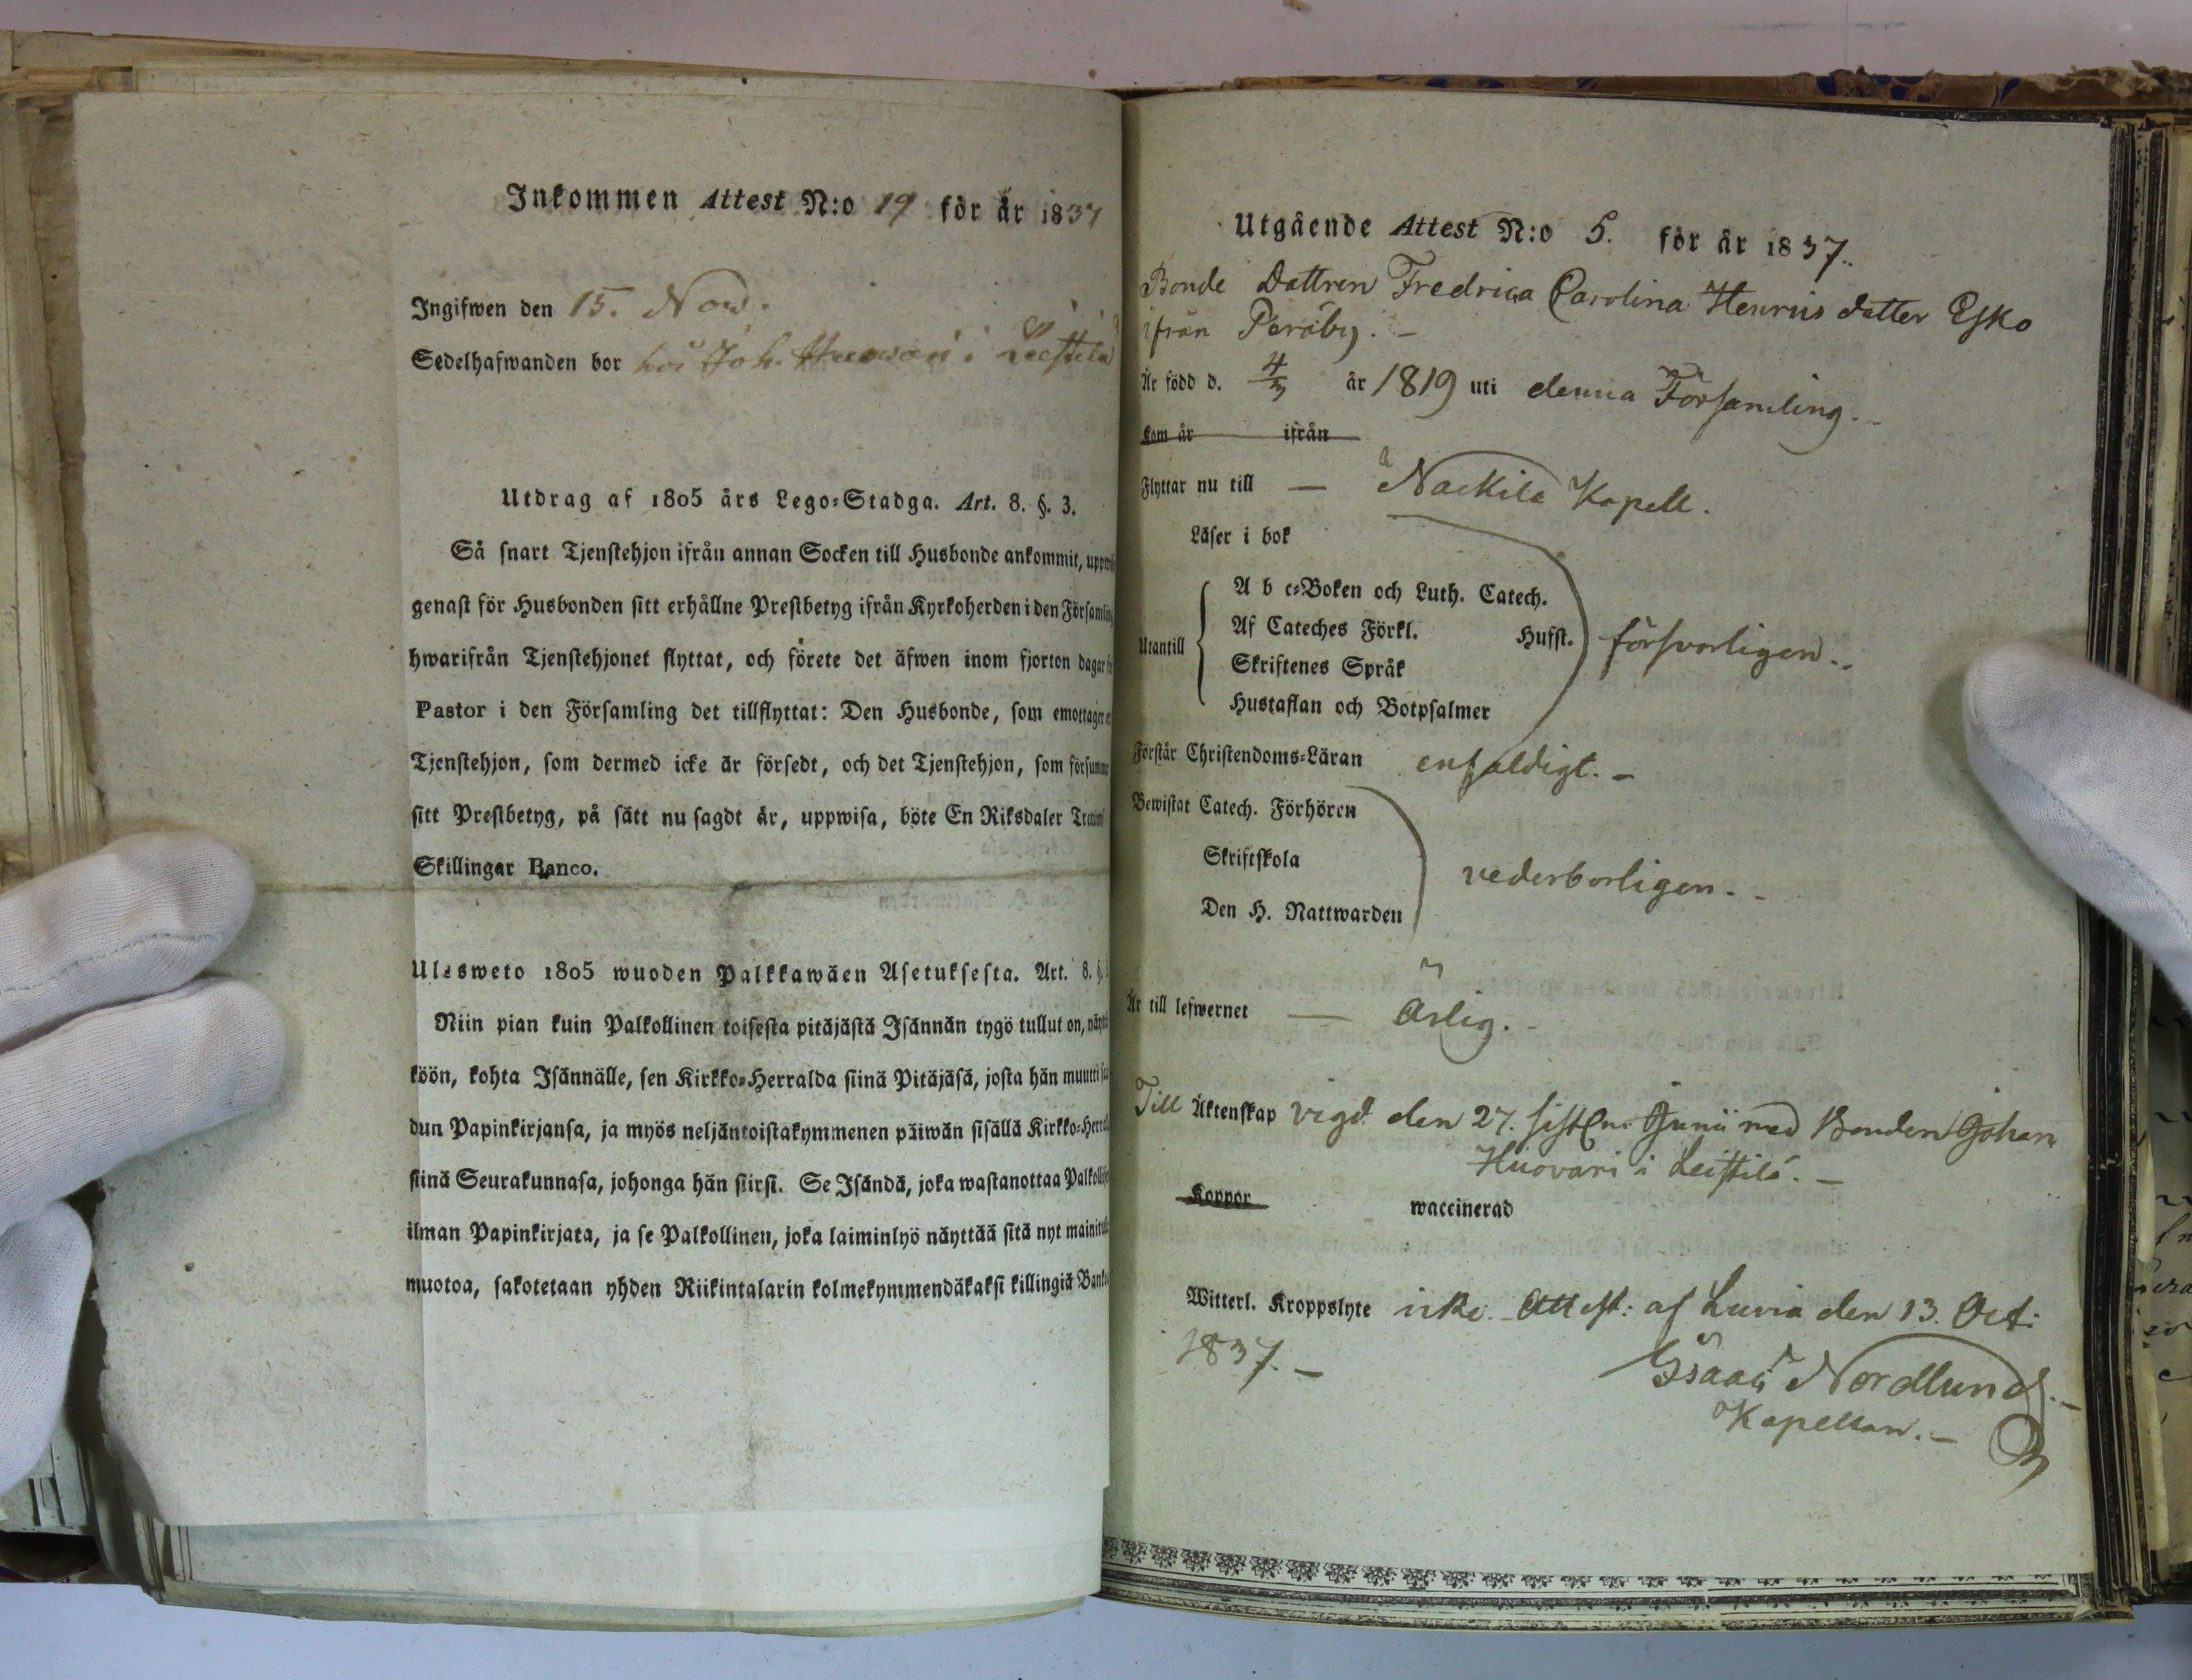 Inkommen Attest N:o 19 för år 1837
Ingifwen den 15. Nov.
Sedelhafwanden bor hos Joh. Huovari i Leistilä
Utdrag af 1805 års Lego-Stadga. Art. 8. §. 3.
Så snart Tjenstehjon ifrån annan Socken till Husbonde ankommit,
genast för Husbonden sitt erhållne Prestbetyg ifrån Kyrkoherden i den Församling
hwarifrån Tjenstehjonet flyttat, och förete det äfwen inom fjorton dagar
Pastor i den Församling det tillflyttat: Den Husbonde, som emottager
Tjenstehjon, som dermed icke är försedt, och det Tjenstehjon, som försummar
sitt Prestbetyg, på sätt nu sagdt är, uppwisa, böte En Riksdaler
Skillingar Banco.
Ulesweto 1805 wuoden Palkkawäen Asetuksesta. Art. 8. §.
Niin pian kuin Palkollinen toisesta pitäjästä Isännän tygö tullut on,
köön, kohta Isännälle, sen Kirkko-Herralda siinä Pitäjäsä, josta hän muutti
dun Papinkirjansa, ja myös neljäntoistakymmenen päiwän sisällä Kirkko-
siinä Seurakunnasa, johonga hän siirsi. Se Isändä, joka wastanottaa
ilman Papinkirjata, ja se Palkollinen, joka laiminlyö näyttää sitä nyt
muotoa, sakotetaan yhden Riikintalarin kolmekymmendäkaksi killingiä
Utgående Attest N:o 5. för år 1837.
Bonde Dottren Fredrica Carolina Henrics dotter Esko
ifrån Peräby. -
Är född d. 4/3 år 1819 uti denna Församling.
Kom år ifrån
Flyttar nu till — Nackila Kapell.
Läser i bok
A b c-Boken och Luth. Catech.
Af Cateches Förkl. Hufst.
Utantill Skriftenes Språk försvarligen.
Hustaflan och Botpsalmer
Förstår Christendoms-Läran enfaldigt. -
Bewistat Catech. Förhören
Skriftskola vederborligen. -
Den H. Nattwarden
Är till lefwernet — ärlig. -
Till Äktenskap vigd den 27. sistl. Junii med Bonden Johan
Huovari i Leistilä. -
Koppor waccinerad
Witterl. Kroppslyte icke. Attest: af Luvia den 13. Oct:
1837. -
Isaac Nordlund. -
Kapellan. -